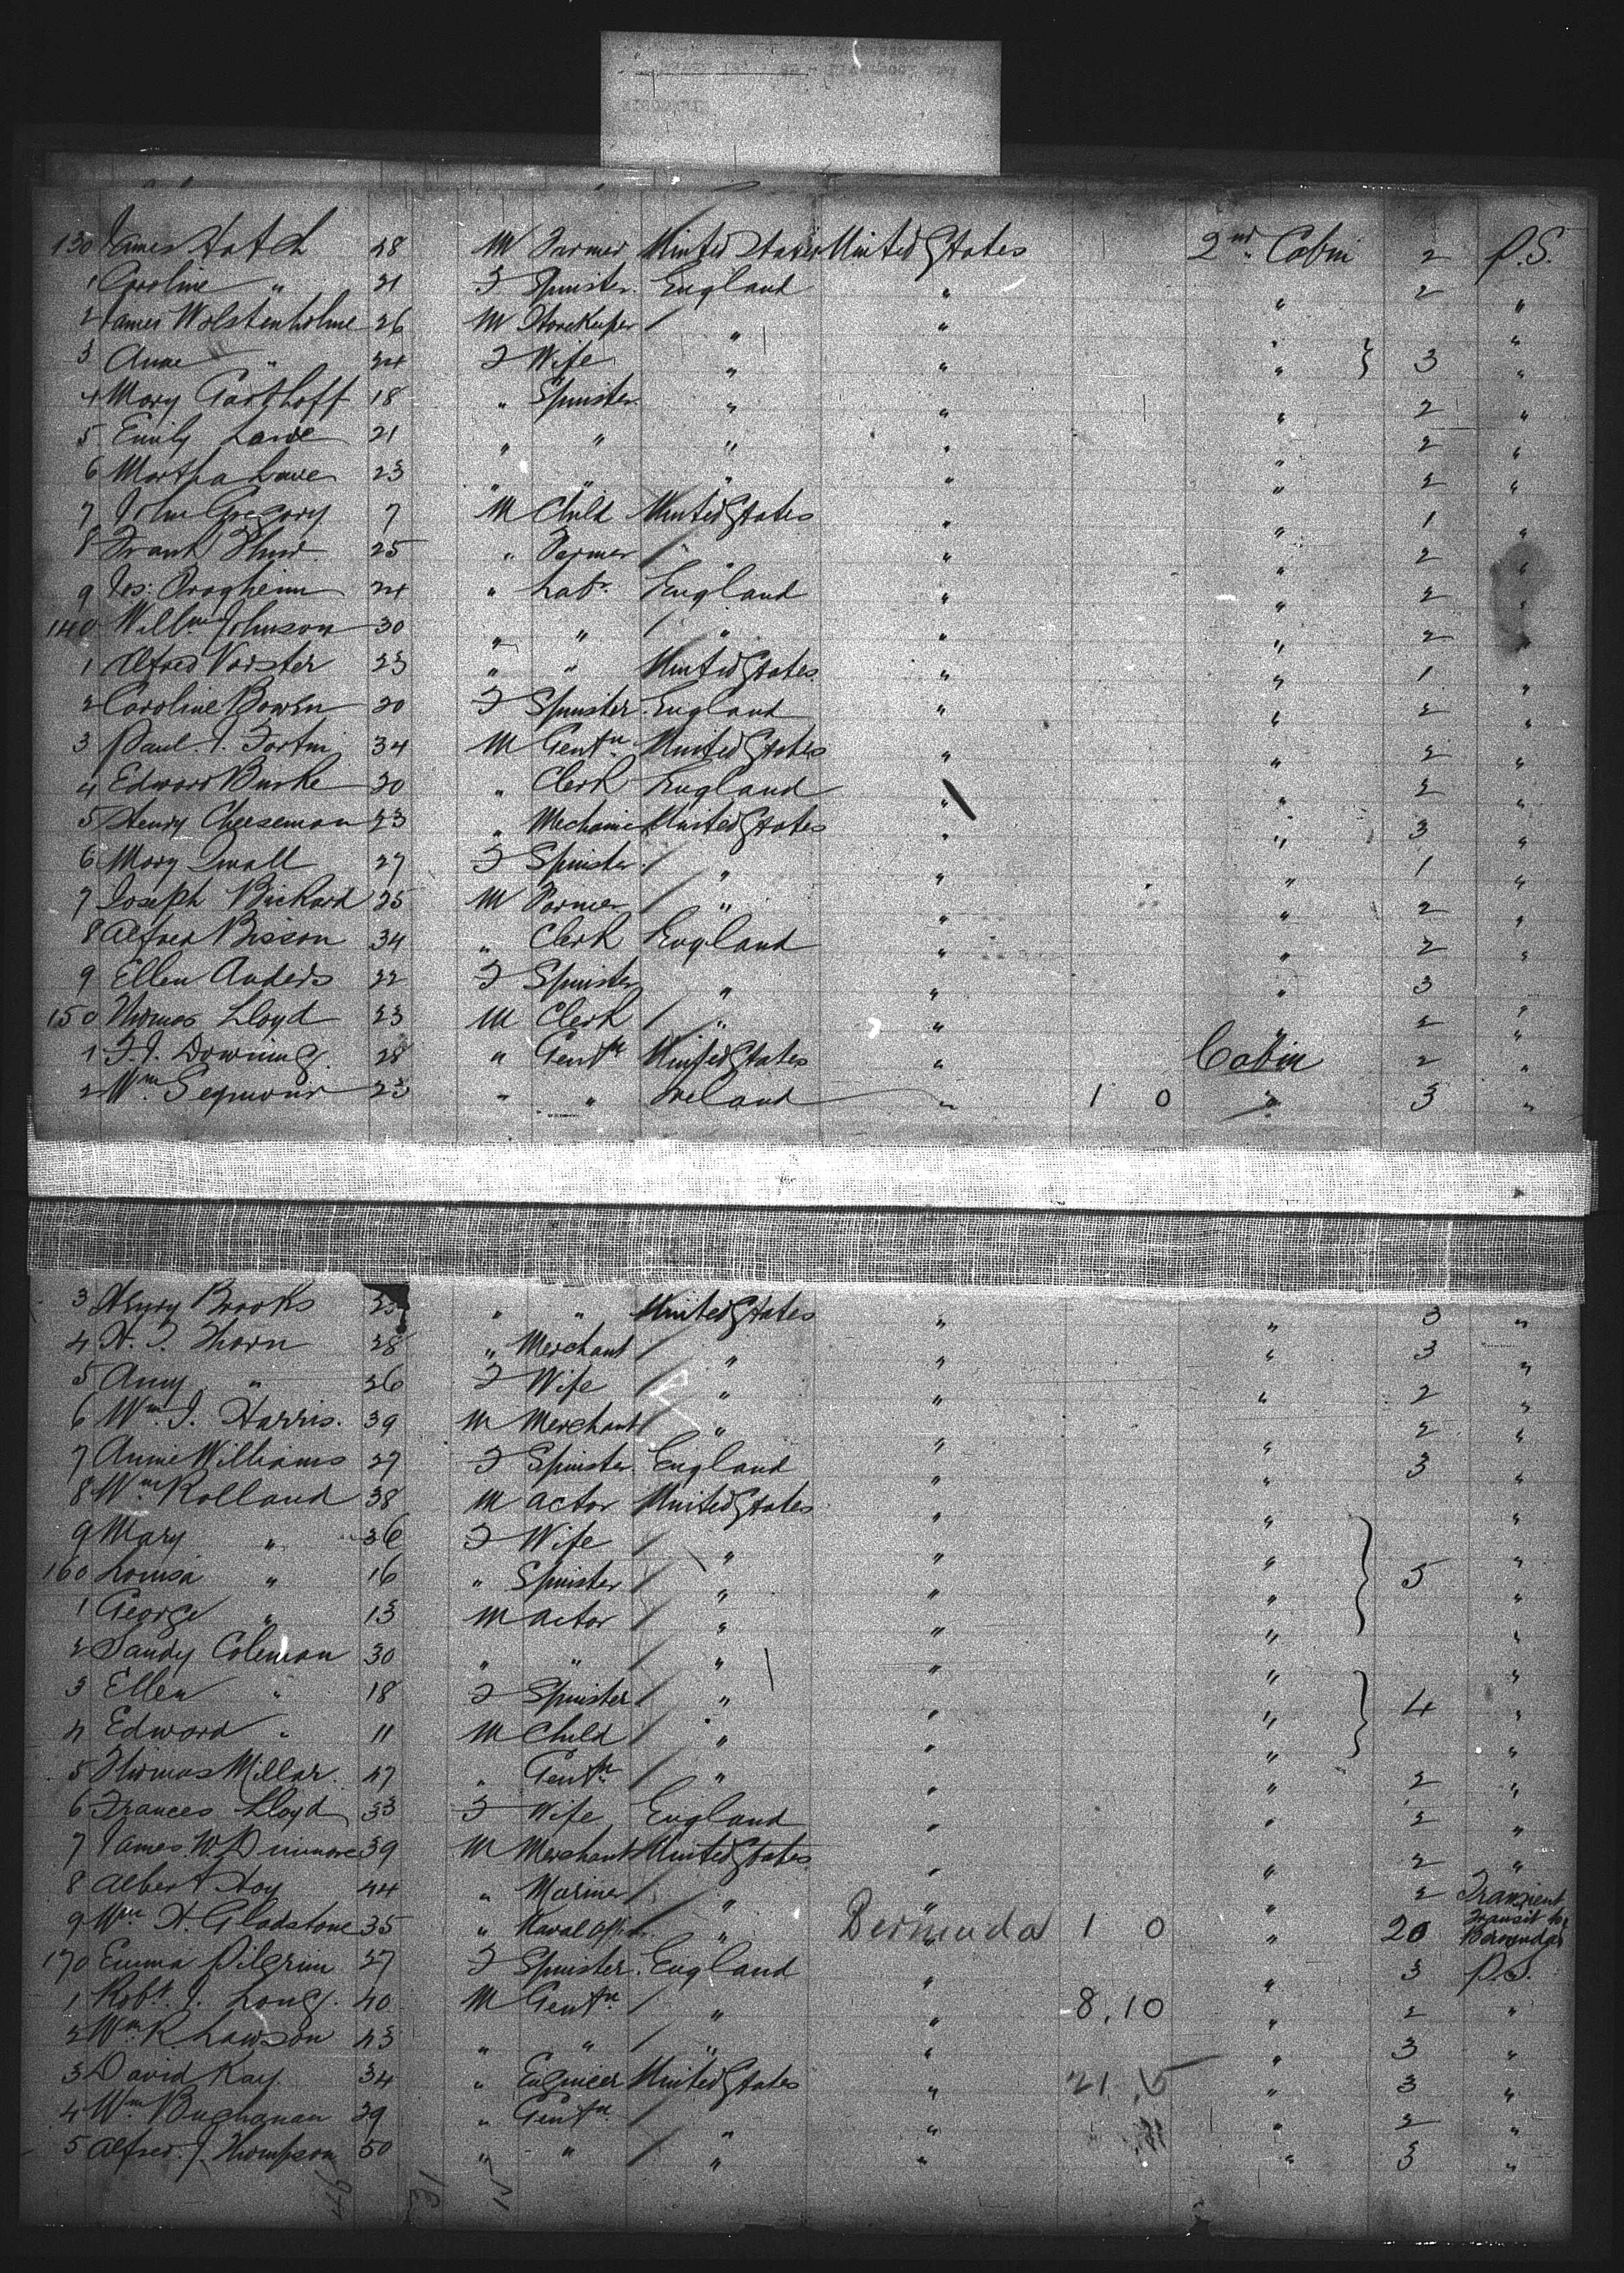 130 James Hatch 48 M Farmer United States United States 2nd Cabin 2 P.S.
1 Caroline " 21 F Spinster England " " 2 "
2 James Wolstenholme 26 M Storekeeper " " " "
3 Anne " 24 F Wife " " " } 3 "
4 Mary Garthoff 18 " Spinster " " " 2 "
5 Emily Lawe 21 " " " " " 2 "
6 Martha Lawe 23 " " " " " 2 "
7 John Gregory 7 M Child United States " " 1 "
8 Frank 25 " Farmer " " " 2 "
9 Jos: 24 " Labr England " " 2 "
140 Willm Johnson 30 " " " " " 2 "
1 Alfred Vorster 23 " " United States " " 1 "
2 Caroline Bowen 20 F Spinster England " " 2 "
3 Paul J. Fortin 34 M Gentn United States " " 2 "
4 Edward Burke 30 " Clerk England " " 2 "
5 Henry Cheeseman 23 " Mechanic United States " " 3 "
6 Mary 27 F Spinster " " " 1 "
7 Joseph Bickard 25 M Farmer " " " 2 "
8 Alfred Bisson 34 " Clerk England " " 2 "
9 Ellen Anders 22 F Spinster " " " 3 "
150 Thomas Lloyd 23 M Clerk " " " 2 "
1 F. J. Downing 28 " Gentn United States " Cabin 2 "
2 Wm Seymour 23 " " Ireland " 1 0 " 3 "
3 Henry Brooks " " United States " " 3 "
4 H. J. Thorn 28 " Merchant " " " 3 "
5 Amy " 26 F Wife " " " 2 "
6 Wm J. Harris. 39 M Merchant " " " 2 "
7 Annie Williams 27 F Spinster England " " 3 "
8 Wm Rolland 38 M Actor United States " " "
9 Mary " 36 F Wife " " " "
160 Louisa " 16 " Spinster " " " } 5 "
1 George " 13 M Actor " " " "
2 Sandy Coleman 30 " " " " " "
3 Ellen " 18 F Spinster " " " } 4 "
4 Edward " 11 M Child " " " "
5 Thomas Millar 47 " Gentn " " " 2 "
6 Frances Lloyd 33 F Wife England " " 2 "
7 James W. Dinmore 39 M Merchant United States " " 2 "
8 Albert Hoy 44 " Mariner " " " 2 Transient
9 Wm H. Gladstone 35 " Naval Offi " Bermuda 1 0 " 20 Transit to Bermuda
170 Emma Pilgrim 27 F Spinster England " " 3 P.S.
1 Robt J. Long. 40 M Gentn " " 8.10 " 2 "
2 Wm R. Lawson 43 " " " " " 3 "
3 David Kay 34 " Engineer United States " 21 5 " 3 "
4 Wm Buchanan 39 " Gentn " " " 2 "
5 Alfred J. Thompson 50 " " " " " 3 "